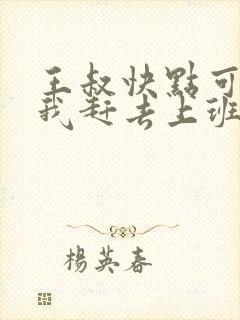 王叔快點可
我赶去上班
楊英春